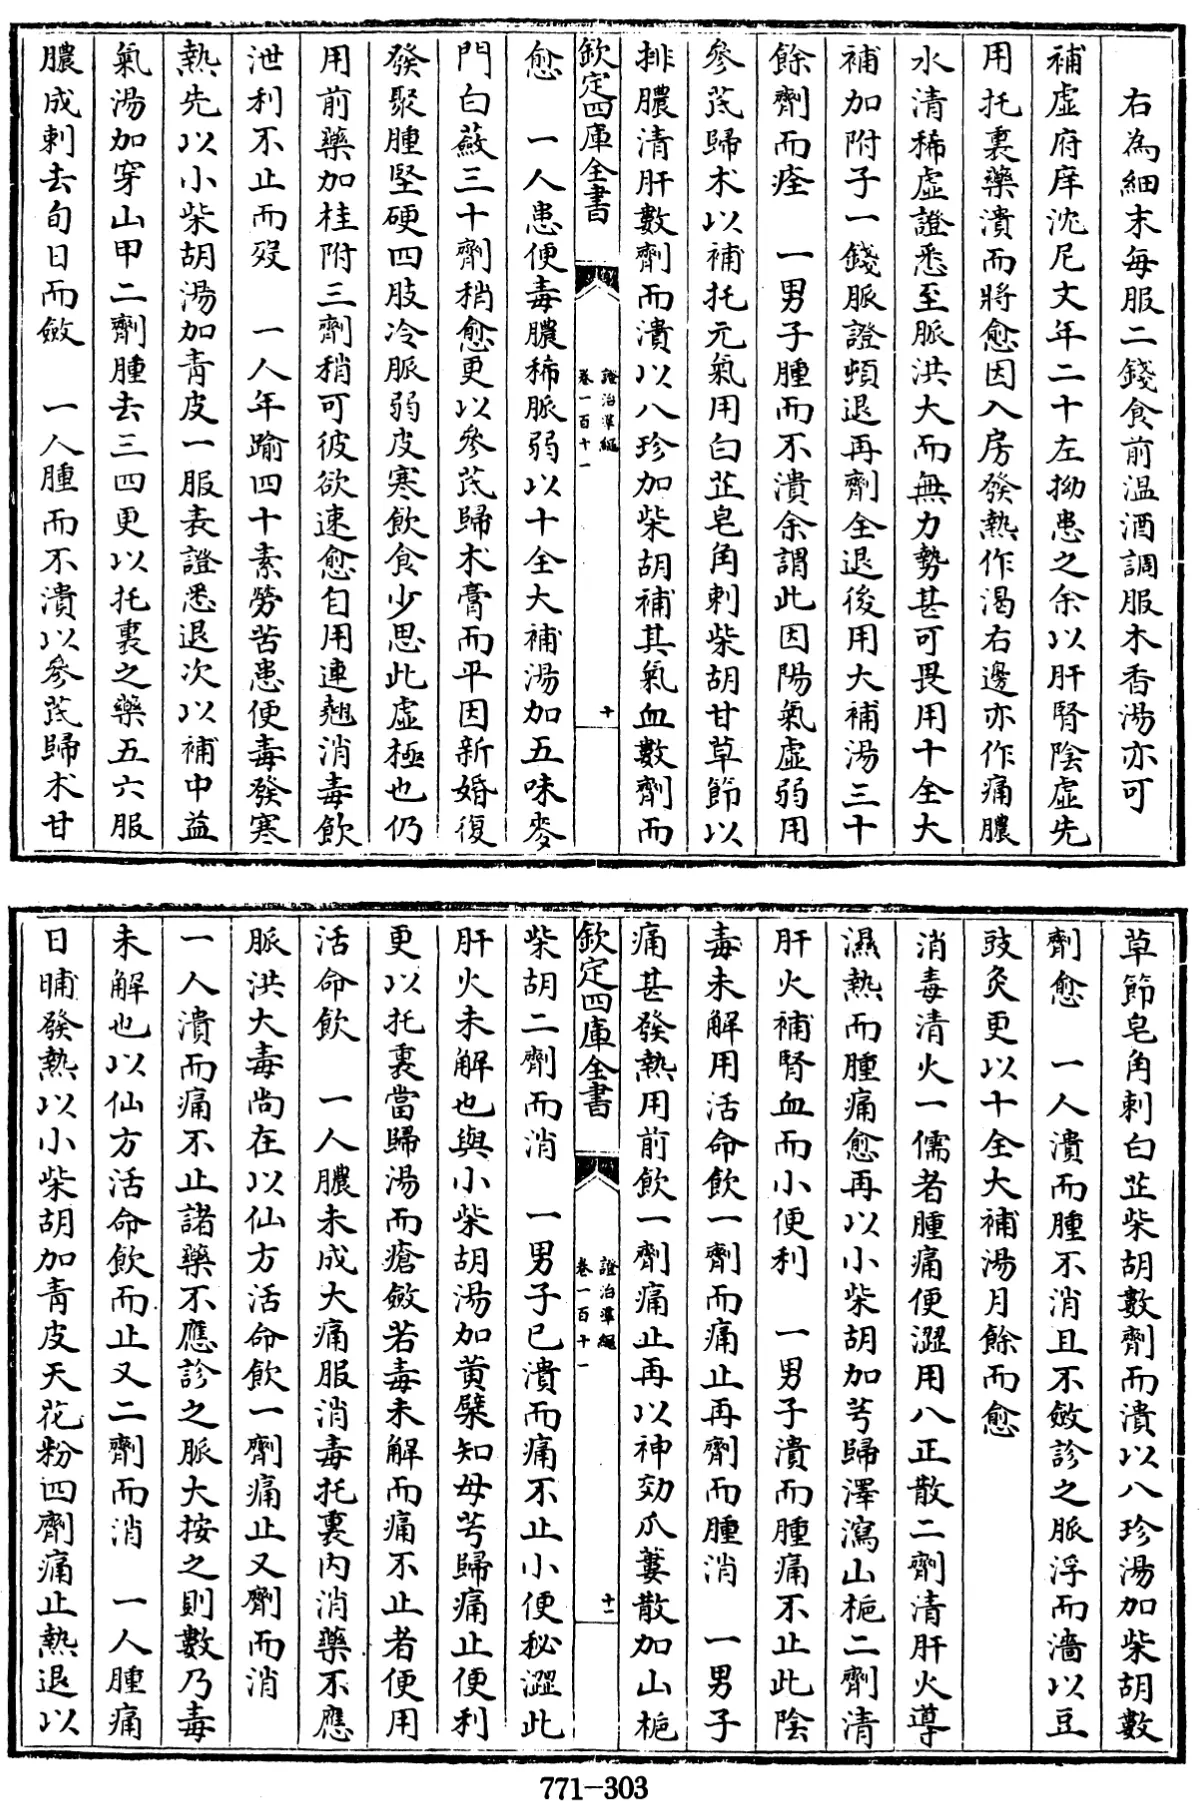 右為細末每服二錢食前温酒調服木香湯亦可
補虛府庠沈尼文年二十左拗患之余以肝腎陰虛先
用托裏藥潰而將愈因入房發熱作渴右邊亦作痛膿
水清稀虛證悉至脈洪大而無力勢甚可畏用十全大
補加附子一錢脈證頓退再劑全退後用大補湯三十
餘劑而痊　一男子腫而不潰余謂此因陽氣虛弱用
參茋歸术以補托元氣用白芷皂角刺柴胡甘草節以
排膿清肝數劑而潰以八珍加柴胡補其氣血數劑而
欽定四庫全書
證治準繩
卷一百十一
十
愈　一人患便毒膿稀脈弱以十全大補湯加五味麥
門白蘞三十劑稍愈更以參茋歸术膏而平因新婚復
發聚腫堅硬四肢冷脈弱皮寒飲食少思此虛極也仍
用前藥加桂附三劑稍可彼欲速愈自用連翹消毒飲
泄利不止而歿　一人年踰四十素勞苦患便毒發寒
熱先以小柴胡湯加青皮一服表證悉退次以補中益
氣湯加穿山甲二劑腫去三四更以托裏之藥五六服
膿成刺去旬日而斂　一人腫而不潰以參茋歸术甘
草節皂角刺白芷柴胡數劑而潰以八珍湯加柴胡數
劑愈　一人潰而腫不消且不斂診之脈浮而濇以豆
豉灸更以十全大補湯月餘而愈
消毒清火一儒者腫痛便澀用八正散二劑清肝火導
濕熱而腫痛愈再以小柴胡加芎歸澤瀉山梔二劑清
肝火補腎血而小便利　一男子潰而腫痛不止此陰
毒未解用活命飲一劑而痛止再劑而腫消　一男子
痛甚發熱用前飲一劑痛止再以神効瓜蔞散加山梔
欽定四庫全書
證治準繩
卷一百十一
十一
柴胡二劑而消　一男子已潰而痛不止小便秘澀此
肝火未解也與小柴胡湯加黄蘗知母芎歸痛止便利
更以托裏當歸湯而瘡斂若毒未解而痛不止者便用
活命飲　一人膿未成大痛服消毒托裏内消藥不應
脈洪大毒尚在以仙方活命飲一劑痛止又劑而消
一人潰而痛不止諸藥不應診之脈大按之則數乃毒
未解也以仙方活命飲而止又二劑而消　一人腫痛
日晡發熱以小柴胡加青皮天花粉四劑痛止熱退以
771-303